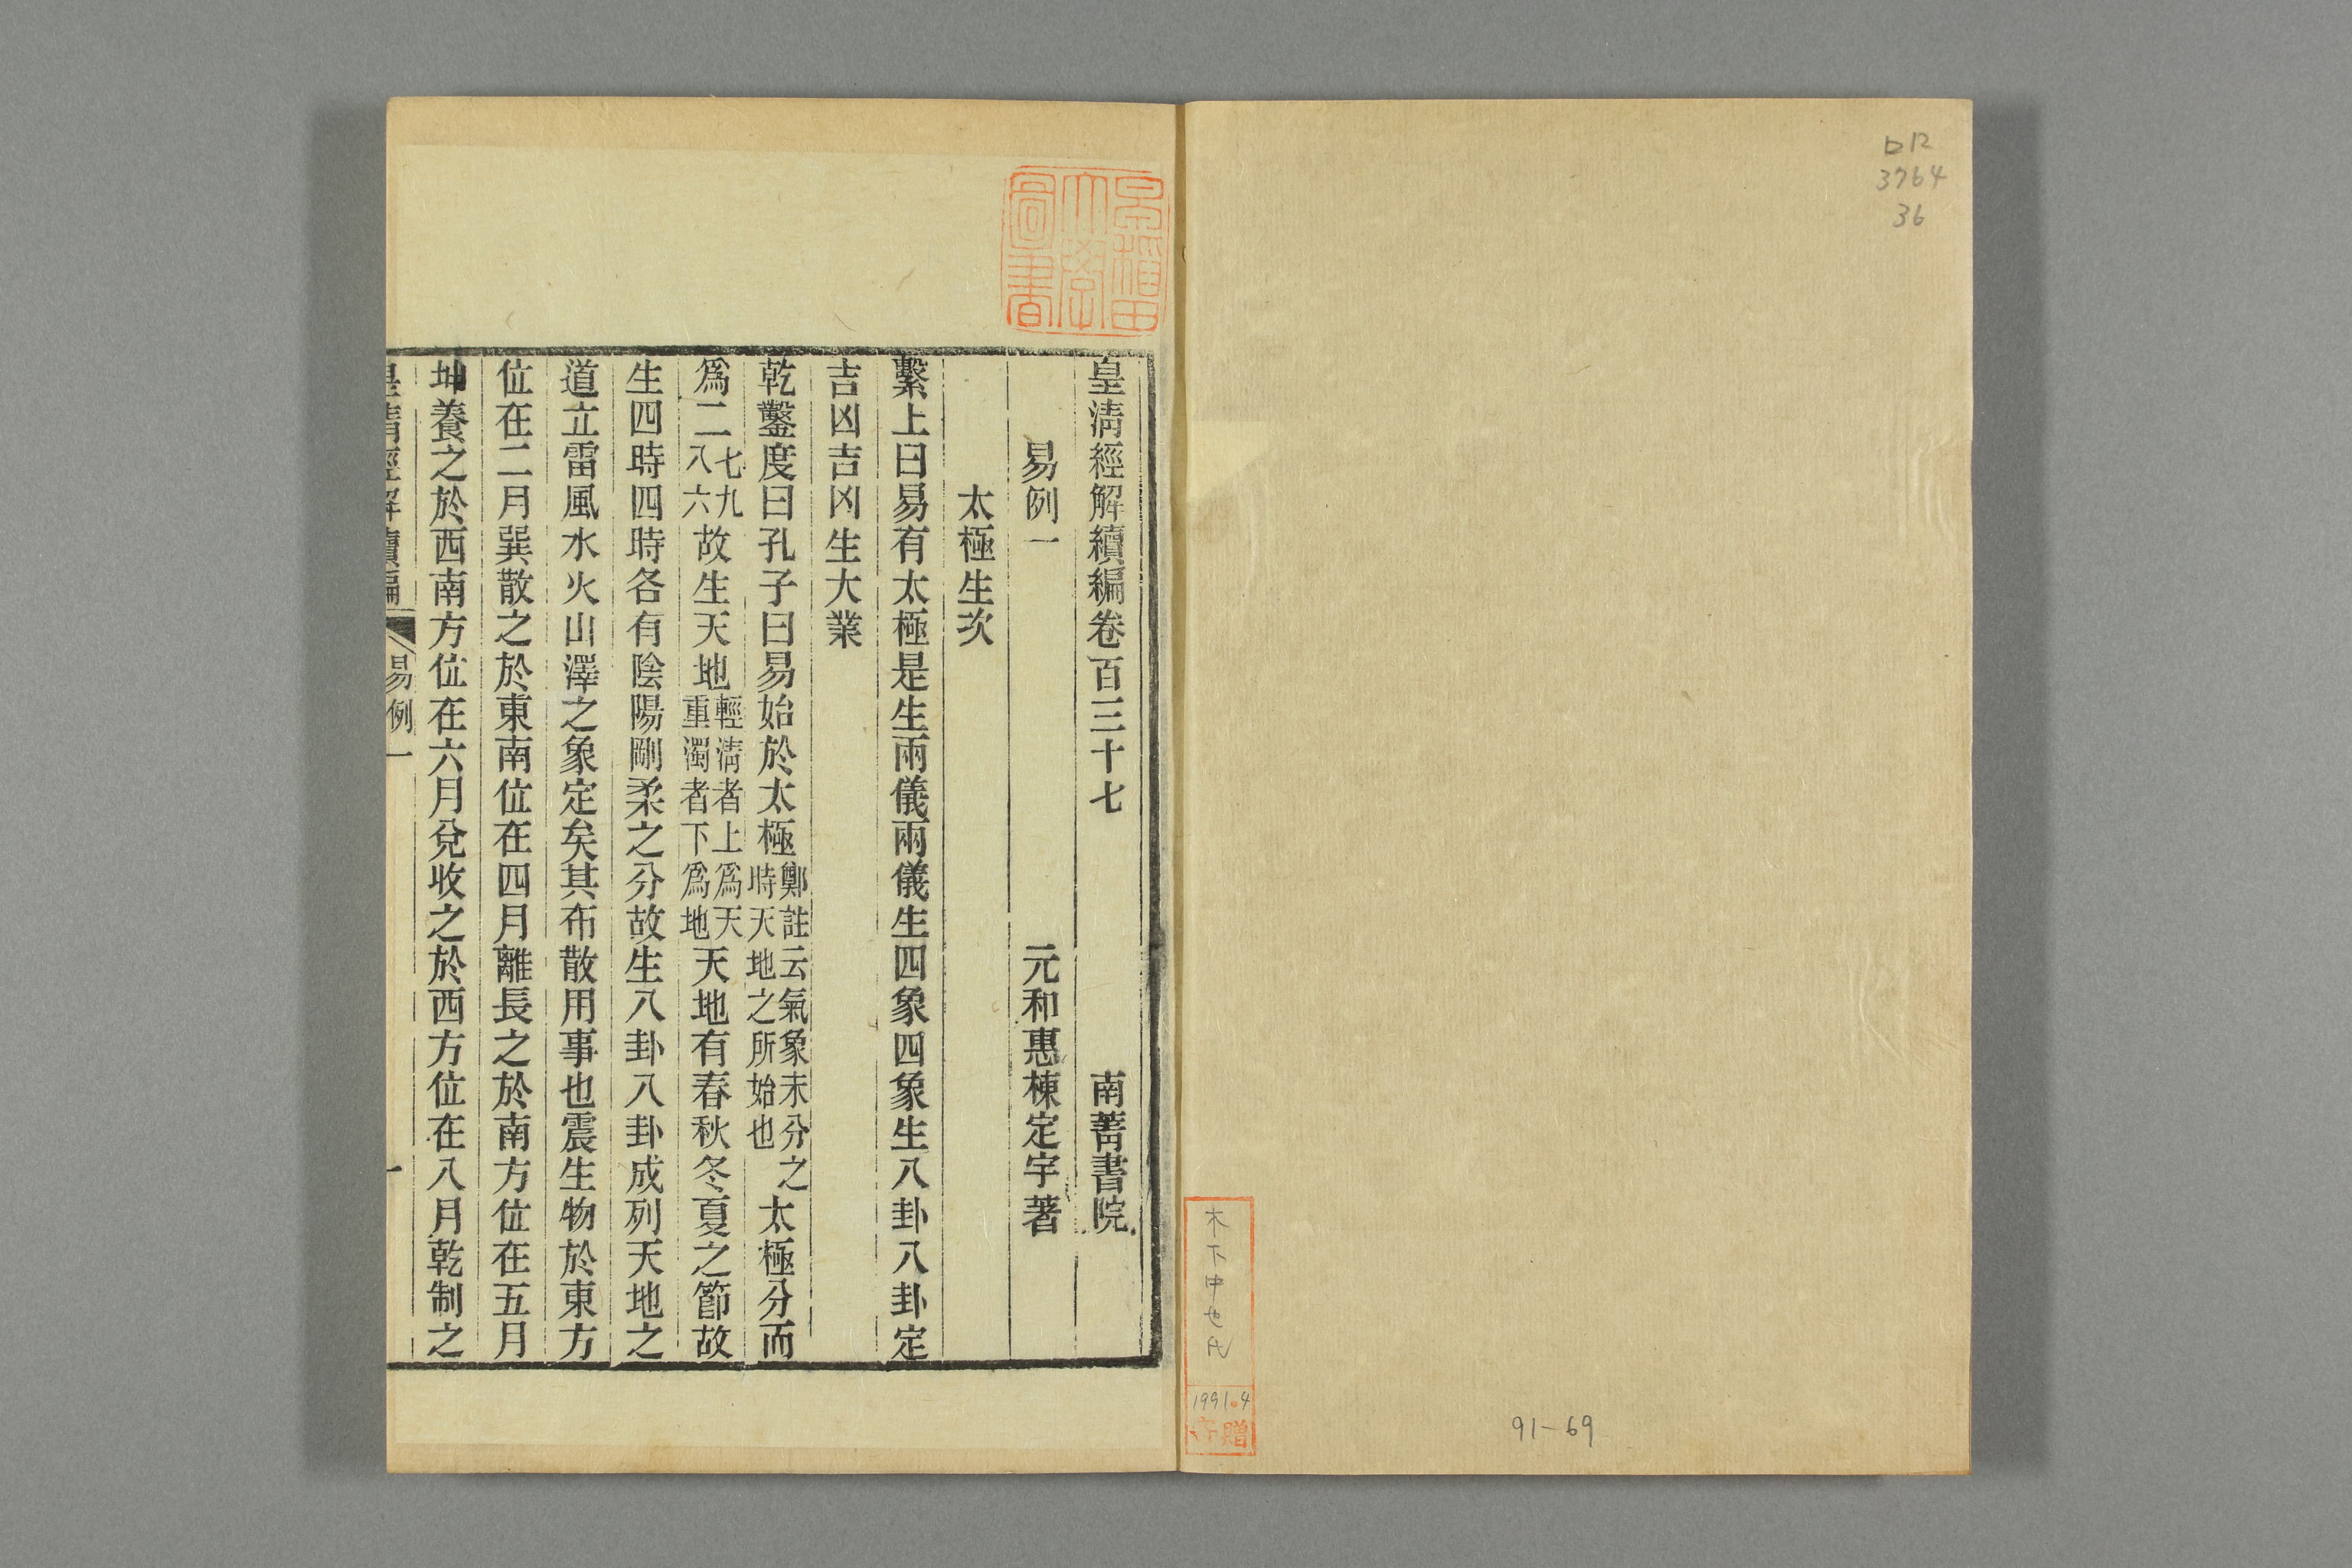 ロ12
3764
36
木下中也氏
1991.4
寄贈
91-69
早稲田大學圖書
皇淸經解續編卷百三十七 南菁書院
易例一 元和惠棟定宇著
太極生次
繫上曰易有太極是生兩儀兩儀生四象四象生八卦八卦定
吉凶吉凶生大業
乾鑿度曰孔子曰易始於太極鄭註云氣象未分之時天地之所始也太極分而
爲二七九八六故生天地輕淸者上爲天重濁者下爲地天地有春秋冬夏之節故
生四時四時各有陰陽剛柔之分故生八卦八卦成列天地之
道立雷風水火山澤之象定矣其布散用事也震生物於東方
位在二月巽散之於東南位在四月離長之於南方位在五月
坤養之於西南方位在六月兌收之於西方位在八月乾制之
皇淸經解續編 易例一 一